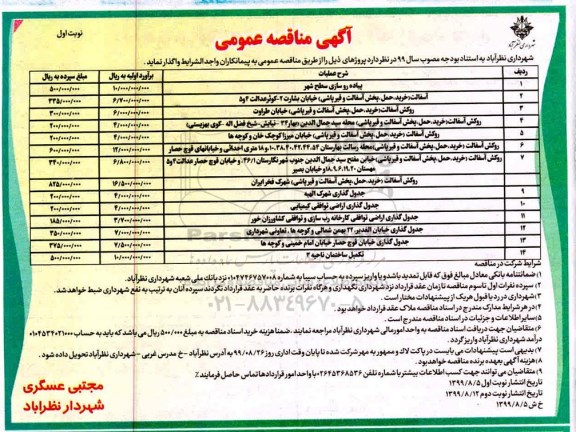 نوبت اول
آگهی مناقصه عمومی
شهرداری نظرآباد
شهرداری نظرآباد به استناد بودجه مصوب سال ۹۹ در نظر دارد پروژهای ذیل را از طریق مناقصه عمومی به پیمانکاران واجد الشرایط واگذار نماید .
ردیف شرح عملیات برآورد اولیه به ریال مبلغ سپرده به ریال
۱ پیاده رو سازی سطح شهر ۱۰/۰۰۰/۰۰۰/۰۰۰ ۵۰۰/۰۰۰/۰۰۰
۲ آسفالت(خرید.حمل.پخش آسفالت و قیرپاشی) خیابان بشارت ۲-کوثر عدالت ۴و۵ ۶/۷۰۰/۰۰۰/۰۰۰ ۳۳۵/۰۰۰/۰۰۰
۳ روکش آسفالت(خرید.حمل.پخش آسفالت و قیرپاشی) خیابان طراوت ۶/۰۰۰/۰۰۰/۰۰۰ ۳۰۰/۰۰۰/۰۰۰
۴ روکش آسفالت(خرید.حمل.پخش آسفالت و قیرپاشی) محله سید جمال الدین (بهار۲۳ -نیایش-شیخ فضل اله -کوی بهزیستی) ۴/۰۰۰/۰۰۰/۰۰۰ ۲۰۰/۰۰۰/۰۰۰
۵ روکش آسفالت(خرید.حمل.پخش آسفالت و قیرپاشی) خیابان میرزا کوچک خان و کوچه ها ۴/۰۰۰/۰۰۰/۰۰۰ ۲۰۰/۰۰۰/۰۰۰
۶ روکش آسفالت(خرید.حمل.پخش آسفالت و قیرپاشی)محله رسالت بهارستان ۱۰.۳۸.۴۰.۴۲.۴۴.۵۴و۱۸ متری احداثی و خیابانهای قوچ حصار ۱۲/۰۰۰/۰۰۰/۰۰۰ ۶۰۰/۰۰۰/۰۰۰
۷ روکش آسفالت(خرید.حمل.پخش آسفالت و قیرپاشی) خیابن مفتح سید جمال الدین جنوب شهر نگارستان ۴۶/۱ و خیابان قوچ حصار عدالت۴و۵
مهستان ۱۸.۹.۶.۱۹.۲۰و خیابان بصیر ۶/۸۰۰/۰۰۰/۰۰۰ ۳۴۰/۰۰۰/۰۰۰
۸ روکش آسفالت (خرید.حمل.پخش آسفالت و قیرپاشی) شهرک فخر ایران ۱۶/۵۰۰/۰۰۰/۰۰۰ ۸۲۵/۰۰۰/۰۰۰
۹ جدول گذاری شهرک الهیه ۴/۰۰۰/۰۰۰/۰۰۰ ۲۰۰/۰۰۰/۰۰۰
۱۰ جدول گذاری اراضی توافقی کیمیایی ۴/۰۰۰/۰۰۰/۰۰۰ ۲۰۰/۰۰۰/۰۰۰
۱۱ جدول گذاری اراضی توافقی کارخانه رب سازی و توافقی کشاورزان خور ۳/۷۰۰/۰۰۰/۰۰۰ ۱۸۵/۰۰۰/۰۰۰
۱۲ جدول گذاری خیابان الغدیر. ۲۲ بهمن شمالی و کوچه ها . تعاونی شهرداری ۷/۰۰۰/۰۰۰/۰۰۰ ۳۵۰/۰۰۰/۰۰۰
۱۳ جدول گذاری خیابان قوچ حصار خیابان امام خمینی و کوچه ها ۷/۵۰۰/۰۰۰/۰۰۰ ۳۷۵/۰۰۰/۰۰۰
۱۴ تکمیل ساختمان ناحیه ۲ ۱۰/۰۰۰/۰۰۰/۰۰۰ ۵۰۰/۰۰۰/۰۰۰
شرایط شرکت در مناقصه
۱)ضمانتنامه بانکی معادل مبالغ فوق که قابل تمدید باشد و یا واریز سپرده به حساب سیبا به شماره ۰۱۰۴۷۲۶۷۵۷۰۰۸ نزد بانك ملی شعبه شهرداری نظرآباد.
۲) سپرده نفرات اول تا سوم مناقصه تا زمان عقد قرارداد نزد شهرداری نگهداری و هرگاه نفرات برنده حاضر به عقد قرارداد نگردند سپرده آنان به ترتیب به نفع شهرداری ضبط خواهد شد.
۳)شهرداری در رد یا قبول هریك از پیشنهادات مختار است .
۴)در هر شرایط مدارک مندرج در اسناد مناقصه ملاک عقد قرارداد خواهد بود .
۵)سایر اطلاعات و جزئیات در اسناد مناقصه مندرج است .
۶)متقاضیان جهت دریافت اسناد مناقصه به واحد امور مالی شهرداری نظرآباد مراجعه نمایند .ضمنا هزینه خرید اسناد مناقصه به مبلغ ۵۰۰/۰۰۰ ریال می باشد که باید به حساب ۰۱۰۴۵۳۴۰۲۱۰۰۰
درآمد شهرداری نظرآباد واریز گردد.
۷)بدیهی است پیشنهادات می بایست در پاکت لاک و ممهور به مهر شرکت شده تا پایان وقت اداری روز ۹۹/۰۸/۲۶ به آدرس نظرآباد - خ مدرس غربی -شهرداری نظرآباد تحویل داده شود .
۸)هزینه آگهی بعهده برنده مناقصه خواهد بود.
۹) متقاضیان می توانند جهت کسب اطلاعات بیشتر با شماره تلفن ۰۲۶۴۵۳۶۸۵۳۶ با واحد امور قراردادها تماس حاصل فرمایند٪
تاریخ انتشار نوبت اول ۱۳۹۹/۸/۵
تاریخ انتشار نوبت دوم ۱۳۹۹/۸/۱۲
خ ش ۱۳۹۹/۸/۵
مجتبی عسگری
شهردار نظرآباد
۰۲۱-۸۸۳۴۹۶۷۰-۵